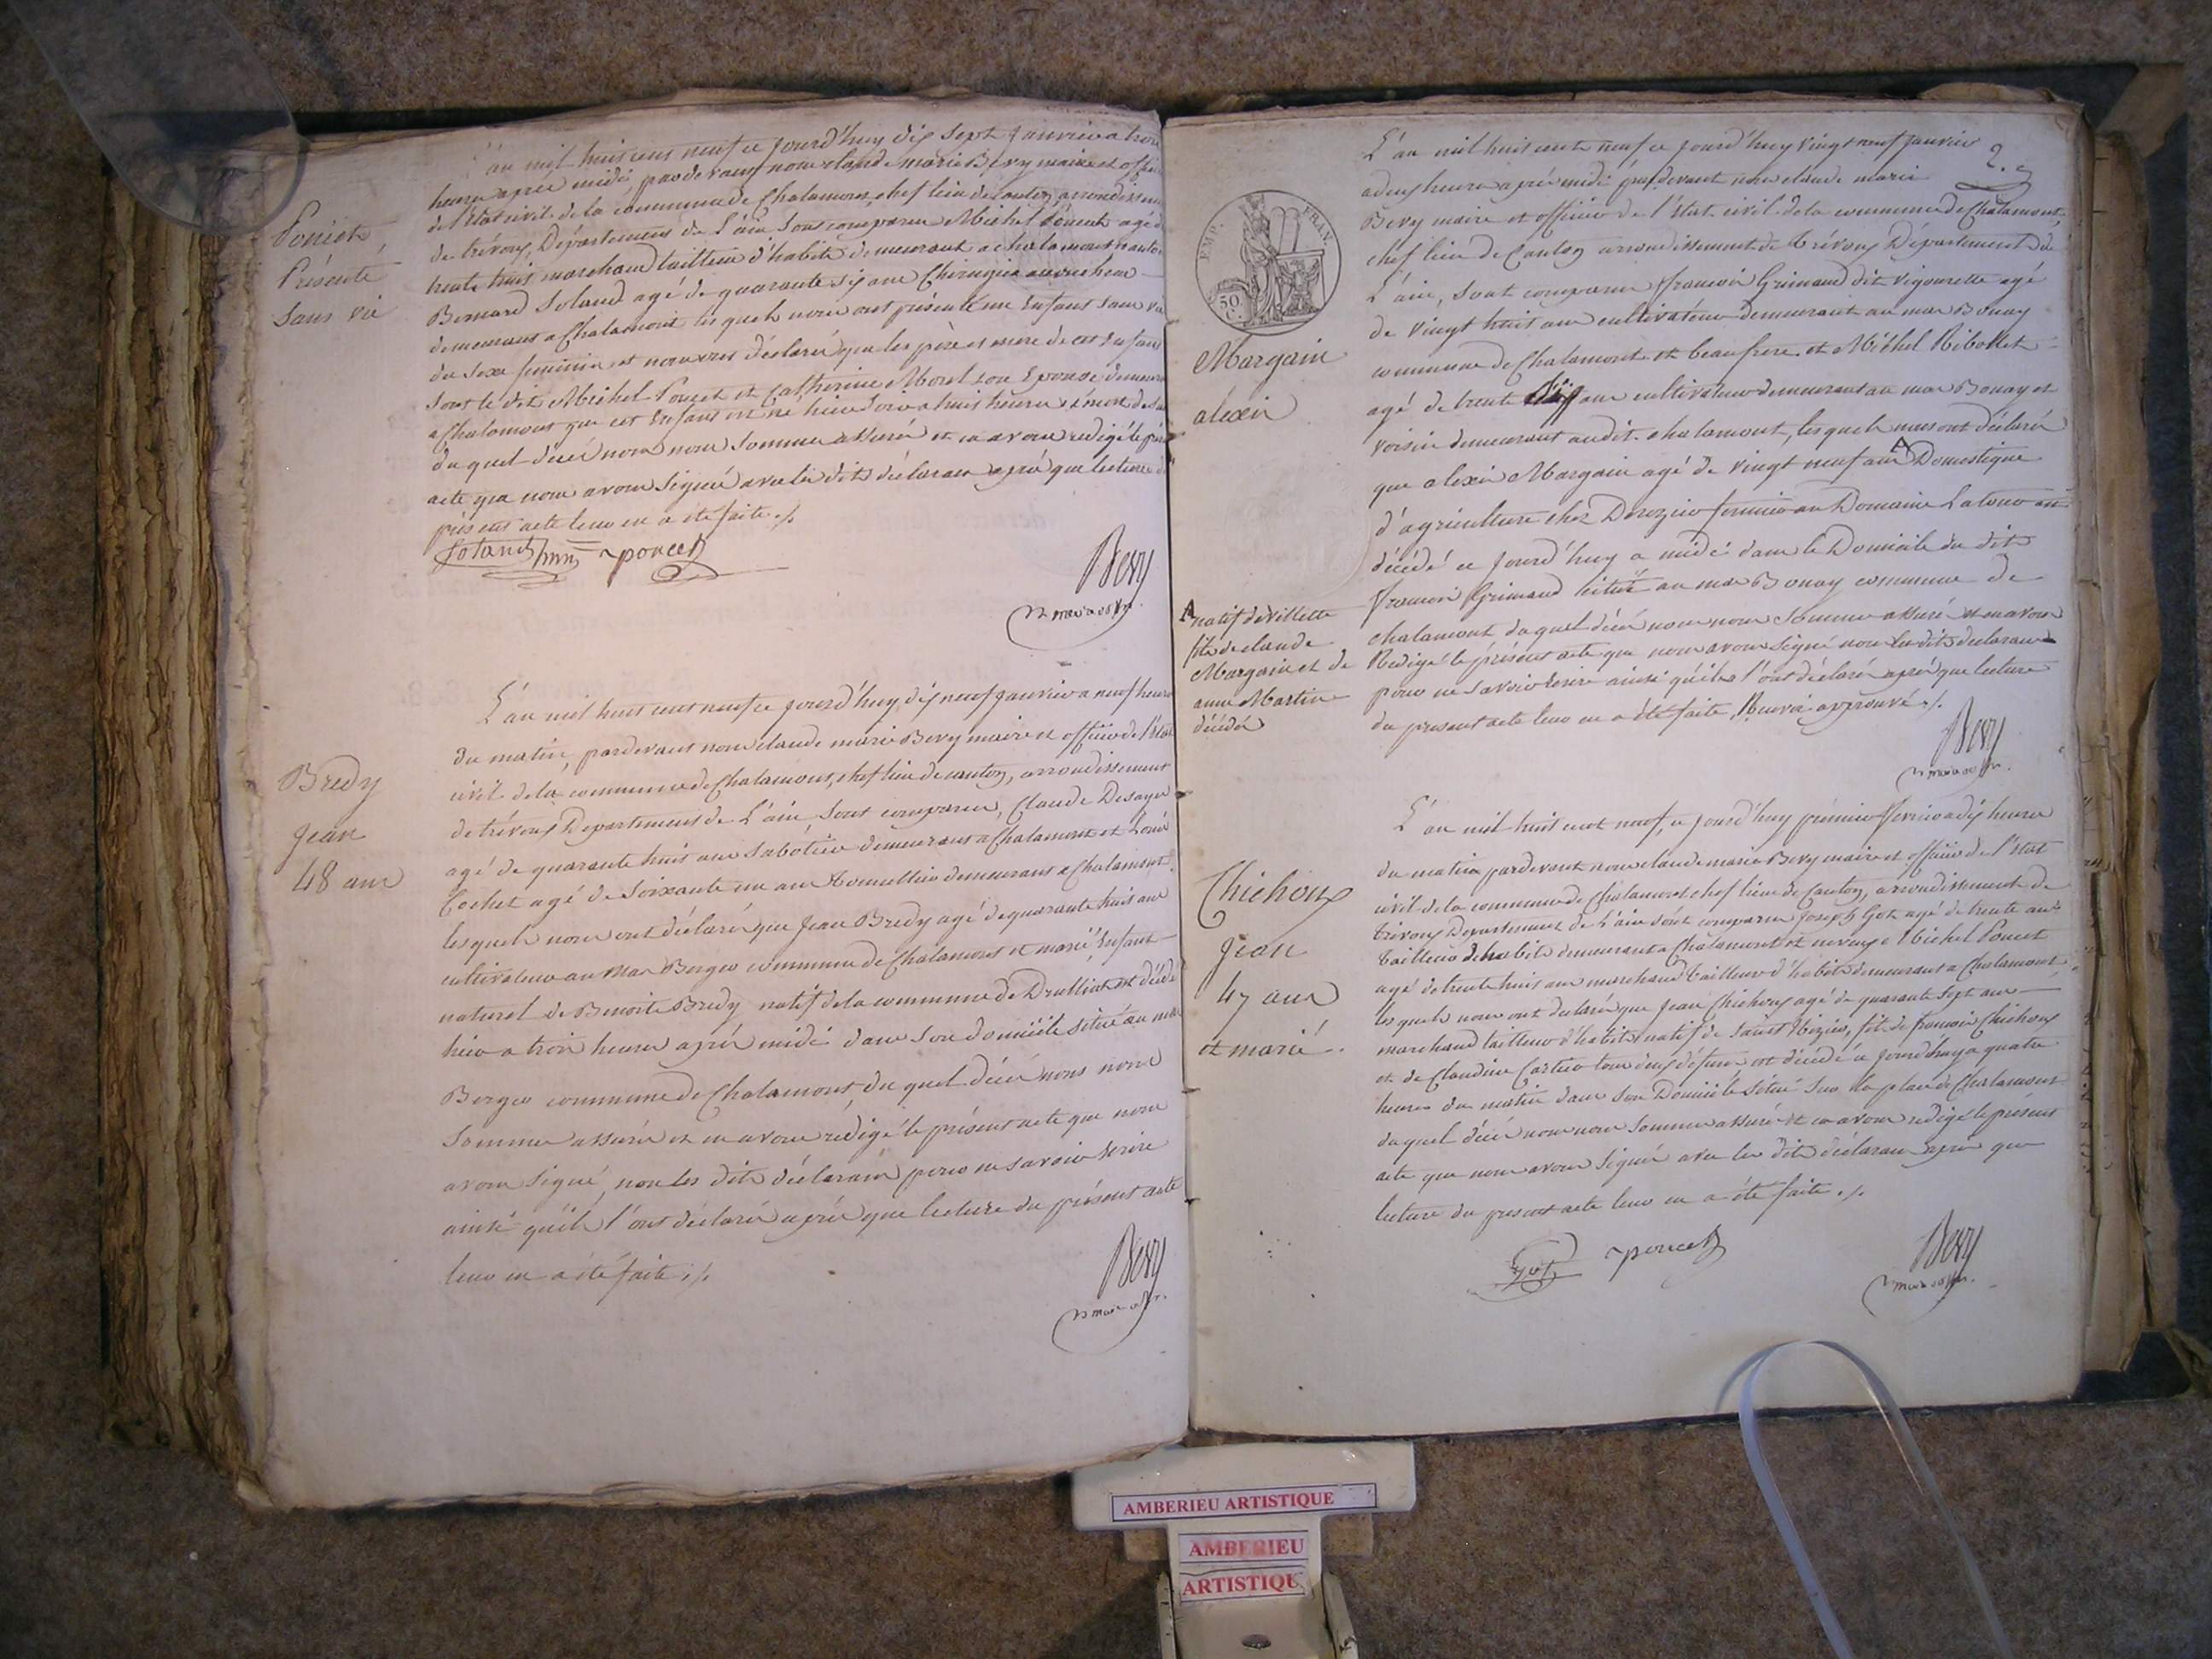 Poncet
Présenté
sans vie
L'an mil huit cent neuf ce jourd'huy dix sept janvier a trois
heures après midi, pardevant nous claude marie Bevy maire et officier
de l'Etat civil de la commune de Chalamont, chef lieu de canton, arrondissement
de trévoux, Département de L'ain, Sont comparus Michel Poncet agé de
trente huit marchand tailleur d'habits demeurant a chalamont
Bernard Soland agé de quarante six ans Chirugien
demeurant a Chalamont les quels nous ont présenté un Enfant sans vie
du sexe féminin et nous ont déclaré que les père et mere de cet Enfant
sont le dit Michel Poncet et Catherine Morel son Epouse demeurant
a Chalamont que cet Enfant est né hier soir a huit heures
du quel décès nous nous sommes assuré et en avons redigé le présent
acte que nous avons signé avec les dits déclarans après que lecture du
présent acte leur en a été faite ./.
Soland poncet
Bevy
Bredy
jean
48 ans
L'an mil huit cent neuf ce jourd'huy dix neuf janvier a neuf heures
du matin, pardevant nous claude marie Bevy maire et officier de l'état
civil de la commune de Chalamont, chef lieu de canton, arrondissement
de trévoux Departement de L'ain, Sont comparus, Claude Desayes
agé de quarante huit ans Sabotier demeurant a Chalamont et Louis
Cochet agé de Soixante un ans demeurant a Chalamont
les quels nous ont déclaré que Jean Bredy agé de quarante huit ans
cultivateur au Mas Berger commune de Chalamont et marié, Enfant
naturel de Benoite Bredy natif de la commune de Druillat est décédé
hier a trois heures après midi dans Son domicile situé au mas
Berger commune de Chalamont, du quel décès nous nous
sommes assurés et en avons rédigé le présent acte que nous
avons signé, non les dits déclarans pour ne savoir écrire
ainsi qu'ils l'ont déclaré après que lecture du présent acte
leur en a été faite ./.
Bevy
2.e
EMP. FRAN.
50 C.
Margain
alexis
L'an mil huit cent neuf ce jourd'huy vingt neuf janvier
a deux heures après midi pardevant nous claude marie
Bevy maire et officier de l'état civil de la commune de Chalamont,
chef lieu de Canton arrondissement de trévoux Département de
L'ain, Sont comparus francois Grimaud dit vigourette agé
de vingt huit ans cultivateur demeurant au mas Bonay
commune de Chalamont et beaufrere et Michel Ribollet
agé de trente ans cultivateur demeurant au mas Bonay et
voisin demeurant audit chalamont, les quels nous ont déclaré
que alexis Margain agé de vingt neuf ans A Domestique
d'agriculture chez Derozier fermier au Domaine Latour
décédé ce jourd'huy a midi dans le Domicile du dit
francois Grimaud situé au mas Bonay commune de
chalamont duquel décès nous nous sommes assuré et en avons
Redigé le présent acte que nous avons signé non les dits declarans
pour ne savoir écrire ainsi qu'ils l'ont déclaré après que lecture
du present acte leur en a été faite, Renvoi approuvé ./.
A natif de Villette
fils de claude
Margain et de
anne Martin
décédés
Bevy
Chichoux
jean
47 ans
et marié.
L'an mil huit cent neuf, ce jourd'huy premier fevrier a dix heures
du matin pardevant nous claude marie Bevy maire et officier de l'état
civil de la commune de Chalamont chef lieu de Canton, arrondissement de
trevoux Departement de L'ain sont comparus joseph Got agé de trente ans
tailleur d'habits demeurant a Chalamont et neveu Michel Poncet
agé de trente huit ans marchand tailleur d'habits demeurant a Chalamont,
les quels nous ont declaré que jean Chichoux agé de quarante sept ans
marchand tailleur d'habits natif de saint Nizier, fils de francois Chichoux
et de Claudine Cartier tous deux défunts est décédé ce jourd'huy a quatre
heures du matin dans son Domicile situé sur la place de Chalamont
duquel décès nous nous sommes assuré et en avons redigé le présent
acte que nous avons signé avec les dits déclarans après que
lecture du present acte leur en a été faite ./.
Got poncet
Bevy
AMBERIEU ARTISTIQUE
AMBERIEU
ARTISTIQUE